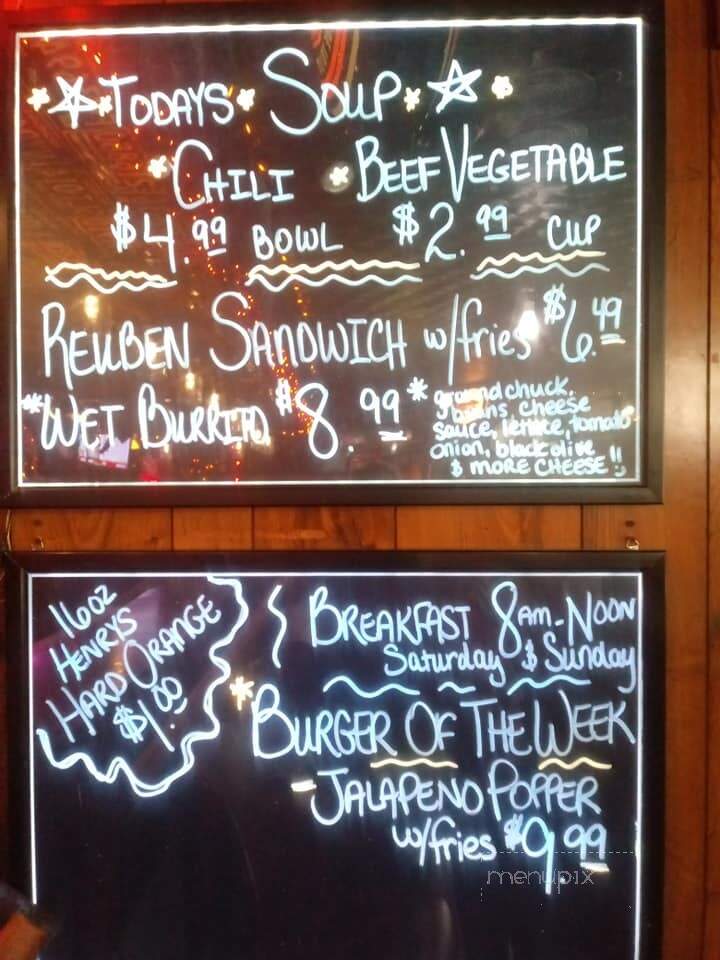 TODAYS SOUP
CHILI BEEF VEGETABLE
$4.99 BOWL $2.99 CUP
REUBEN SANDWICH w/fries $6.49
*WET BURRITO $8.99 * ground chuck,
beans, cheese
sauce, lettuce, tomato
onion, black olive
& MORE CHEESE!!
16 OZ
HENRYS
HARD ORANGE
$1.00
BREAKFAST 8AM-NOON
Saturday & Sunday
BURGER OF THE WEEK
JALAPENO POPPER
w/fries $9.99
menupix